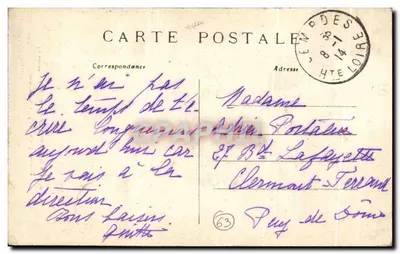 CARTE POSTALE
LEMPDES
8-1
8 14
HTE LOIRE
Correspondance
Adresse
Je n'ai pas
le temps de t'e
crire longuement
aujourd'hui car
je vais à la
direction
Bons baisers
Madame
Portalié
27 Bd Lafayette
Clermont-Ferrand
Puy de Dôme
63